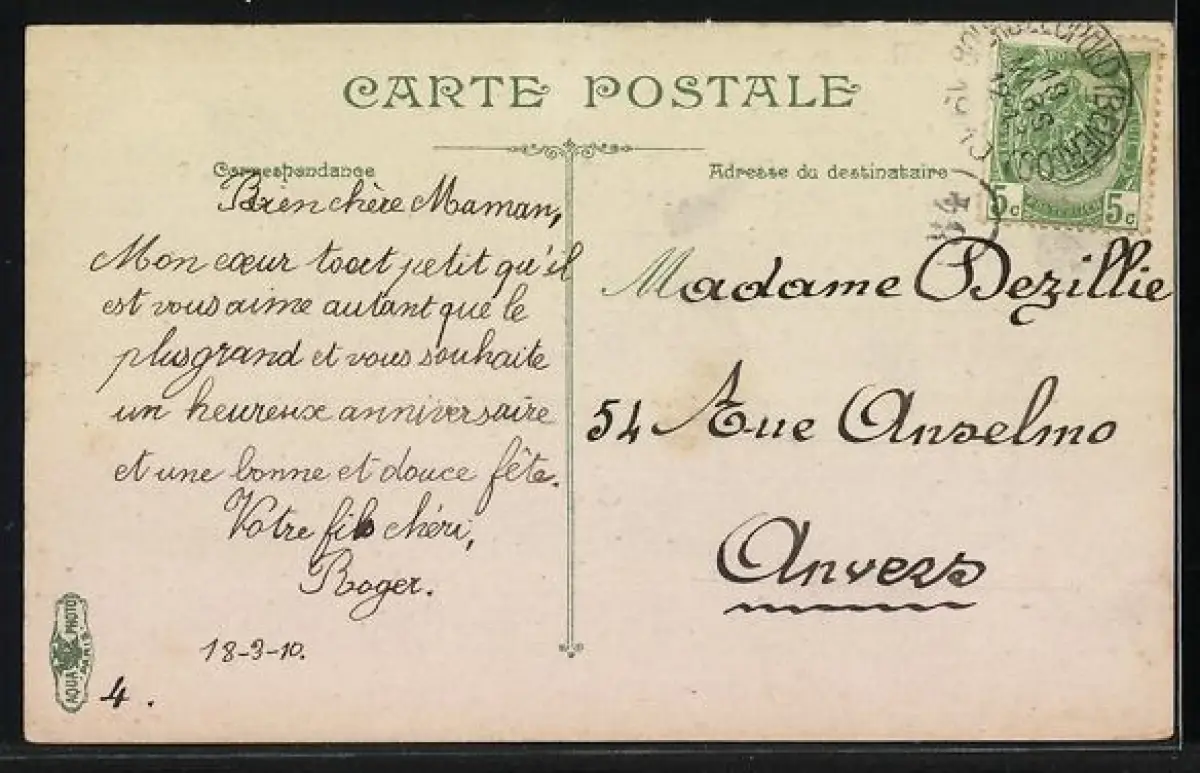 CARTE POSTALE
Correspondance
Adresse du destinataire
Bien chère Maman,
Mon cœur tout petit qu'il
est vous aime autant que le
plus grand et vous souhaite
un heureux anniversaire
et une bonne et douce fête.
Votre fils chéri,
Roger.
18-3-10.
4.
AQUA PHOTO
PARIS
Madame Dezillie
54 Rue Anselmo
Anvers
5c 5c